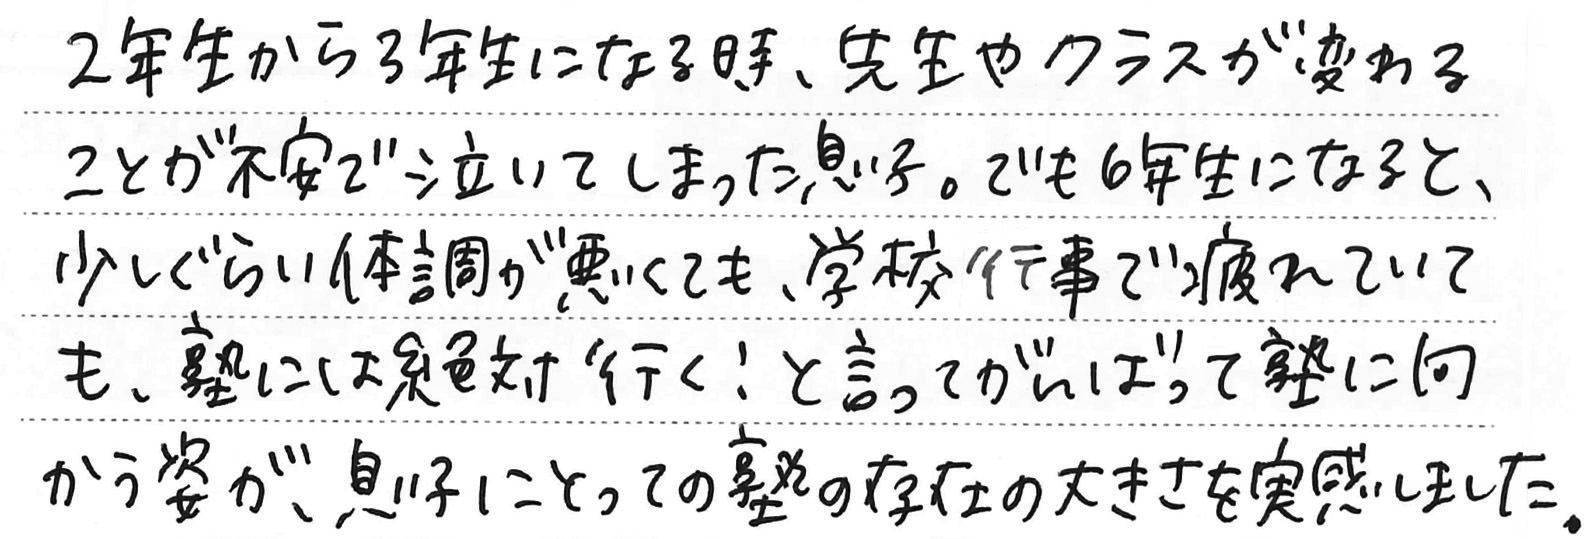 2年生から3年生になる時、先生やクラスが変わる
ことが不安で泣いてしまった息子。でも6年生になると、
少しぐらい体調が悪くても、学校行事で疲れていて
も、塾には絶対行く！と言ってがんばって塾に向
かう姿が、息子にとっての塾の存在の大きさを実感しました。